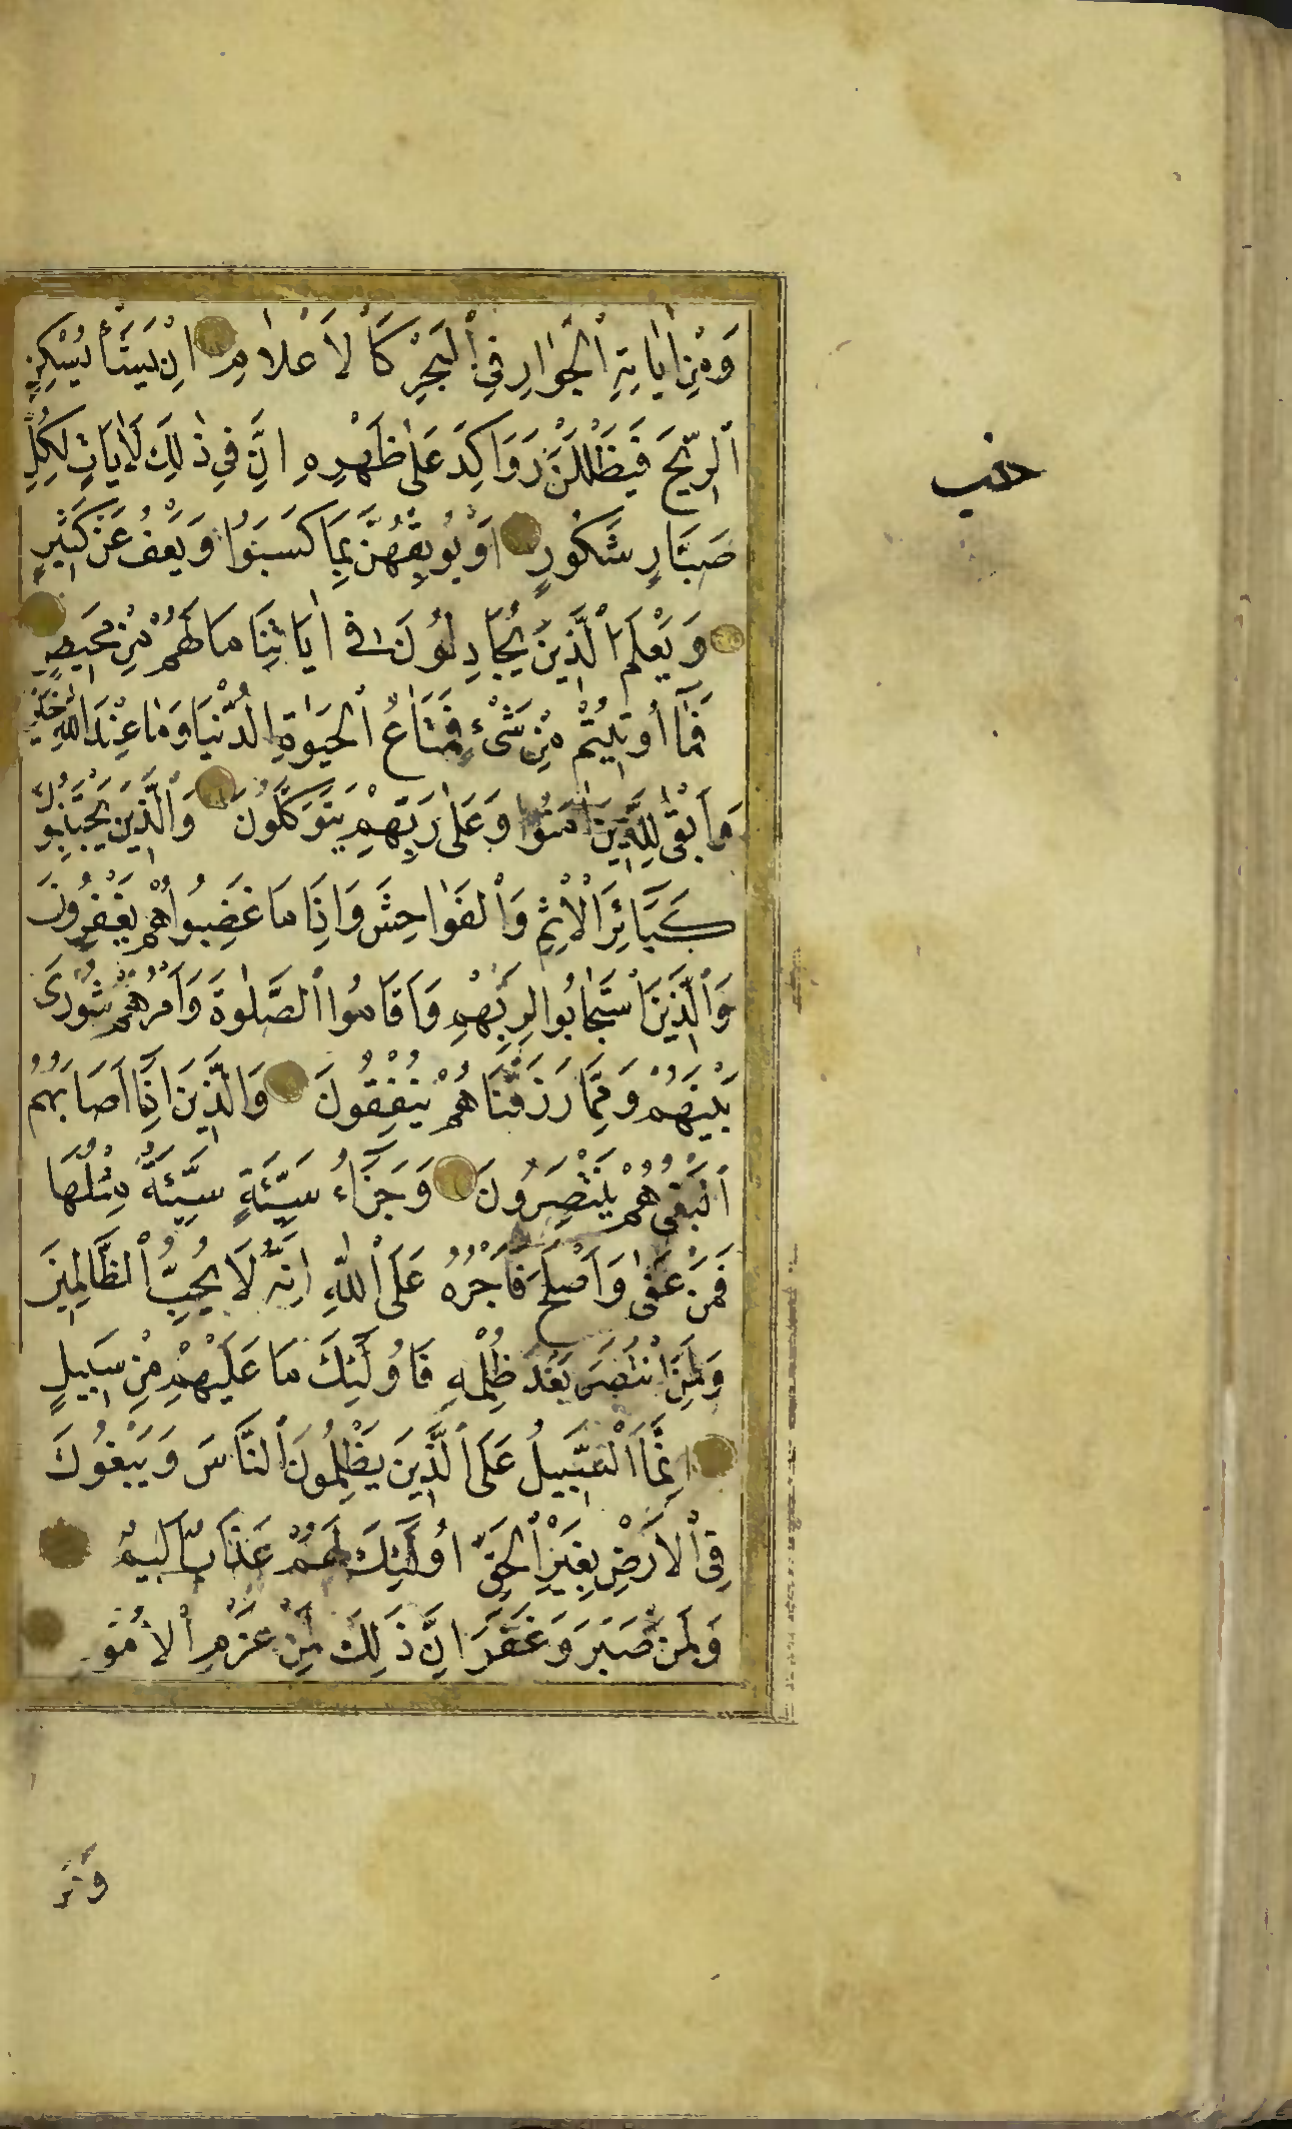 وَمِنْ اٰيَاتِهِ الْجَوَارِ فِي الْبَحْرِ كَالْاَعْلَامِ اِنْ يَشَأْ يُسْكِنِ
الرِّيحَ فَيَظْلَلْنَ رَوَاكِدَ عَلٰى ظَهْرِهِ اِنَّ فِي ذٰلِكَ لَاٰيَاتٍ لِكُلِّ
صَبَّارٍ شَكُورٍ اَوْ يُوبِقْهُنَّ بِمَا كَسَبُوا وَيَعْفُ عَنْ كَثِيرٍ
وَيَعْلَمَ الَّذِينَ يُجَادِلُونَ فِي اٰيَاتِنَا مَا لَهُمْ مِنْ مَحِيصٍ
فَمَا اُوتِيتُمْ مِنْ شَيْءٍ فَمَتَاعُ الْحَيٰوةِ الدُّنْيَا وَمَا عِنْدَ اللّٰهِ خَيْرٌ
وَاَبْقٰى لِلَّذِينَ اٰمَنُوا وَعَلٰى رَبِّهِمْ يَتَوَكَّلُونَ وَالَّذِينَ يَجْتَنِبُونَ
كَبَائِرَ الْاِثْمِ وَالْفَوَاحِشَ وَاِذَا مَا غَضِبُوا هُمْ يَغْفِرُونَ
وَالَّذِينَ اسْتَجَابُوا لِرَبِّهِمْ وَاَقَامُوا الصَّلٰوةَ وَاَمْرُهُمْ شُورٰى
بَيْنَهُمْ وَمِمَّا رَزَقْنَاهُمْ يُنْفِقُونَ وَالَّذِينَ اِذَا اَصَابَهُمُ
الْبَغْيُ هُمْ يَنْتَصِرُونَ وَجَزَاءُ سَيِّئَةٍ سَيِّئَةٌ مِثْلُهَا
فَمَنْ عَفٰى وَاَصْلَحَ فَاَجْرُهُ عَلَى اللّٰهِ اِنَّهُ لَا يُحِبُّ الظَّالِمِينَ
وَلَمَنِ انْتَصَرَ بَعْدَ ظُلْمِهِ فَاُولٰئِكَ مَا عَلَيْهِمْ مِنْ سَبِيلٍ
اِنَّمَا السَّبِيلُ عَلَى الَّذِينَ يَظْلِمُونَ النَّاسَ وَيَبْغُونَ
فِي الْاَرْضِ بِغَيْرِ الْحَقِّ اُولٰئِكَ لَهُمْ عَذَابٌ اَلِيمٌ
وَلَمَنْ صَبَرَ وَغَفَرَ اِنَّ ذٰلِكَ لَمِنْ عَزْمِ الْاُمُو